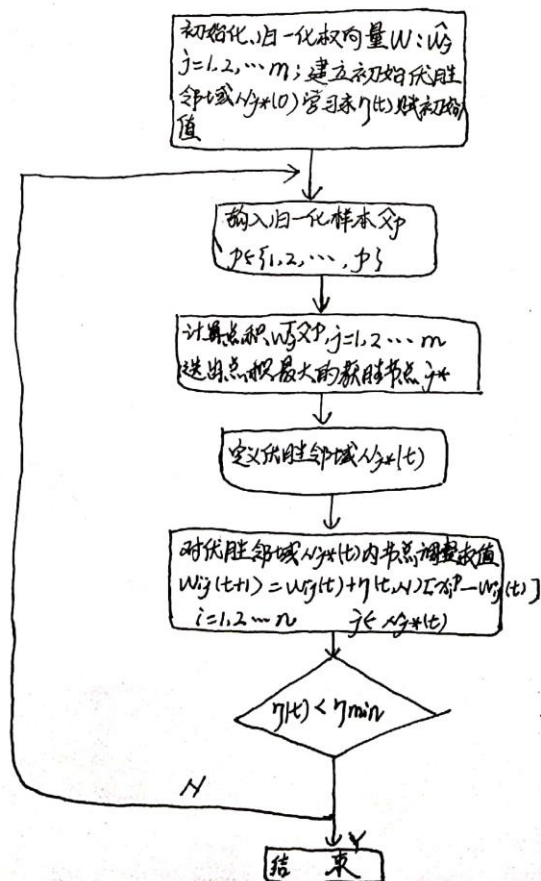 初始化、归一化权向量W:Ŵj
j=1,2,…m;建立初始优胜
邻域Nj*(0)学习率η(t)赋初始
值
输入归一化样本X̂p
p∈{1,2,…,p}
计算点积ŴjᵀX̂p,j=1,2…m
选出点积最大的获胜节点j*
定义优胜邻域Nj*(t)
对优胜邻域Nj*(t)内节点调整权值
Wij(t+1)=Wij(t)+η(t,N)[xiᵖ-Wij(t)]
i=1,2…n j∈Nj*(t)
η(t)<ηmin
N
Y
结 束